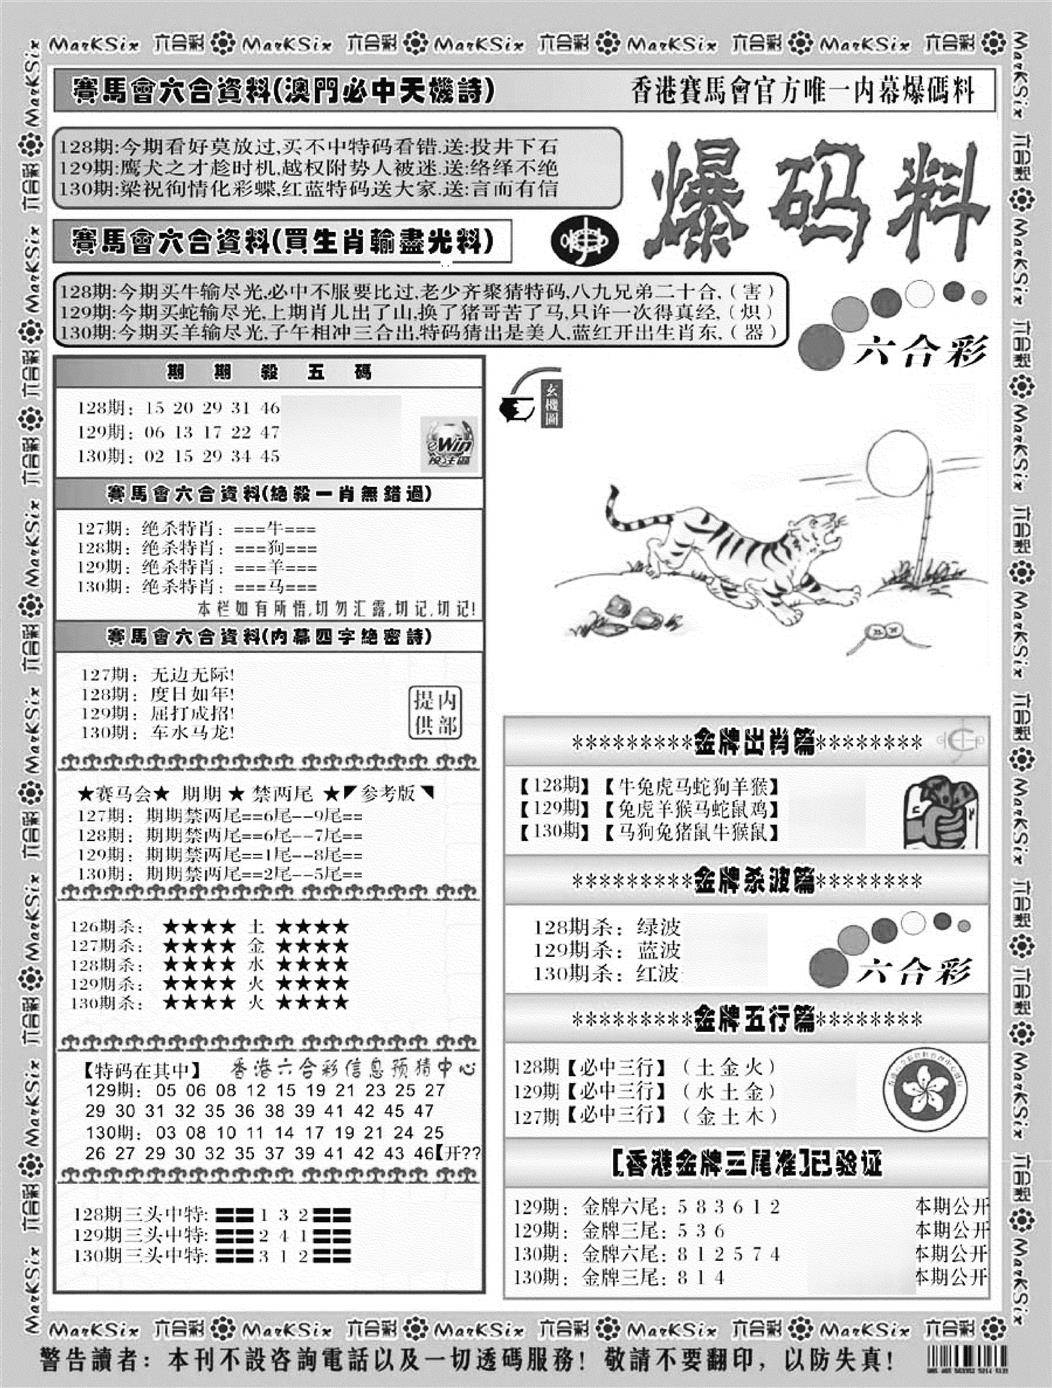 MarKSix 六合彩 MarKSix 六合彩 MarKSix 六合彩 MarKSix 六合彩 MarKSix 六合彩
賽馬會六合資料(澳門必中天機詩)
香港賽馬會官方唯一内幕爆碼料
128期:今期看好莫放过,买不中特码看错.送:投井下石
129期:鹰犬之才趁时机,越权附势人被迷.送:络绎不绝
130期:梁祝徇情化彩蝶,红蓝特码送大家.送:言而有信
爆码料
賽馬會六合資料(買生肖輸盡光料)
128期:今期买牛输尽光,必中不服要比过,老少齐聚猜特码,八九兄弟二十合,（害）
129期:今期买蛇输尽光,上期肖儿出了山,换了猪哥苦了马,只许一次得真经,（炽）
130期:今期买羊输尽光,子午相冲三合出,特码猜出是美人,蓝红开出生肖东,（器）
六合彩
期期殺五碼
128期: 15 20 29 31 46
129期: 06 13 17 22 47
130期: 02 15 29 34 45
eWin
投注區
玄機圖
賽馬會六合資料(絶殺一肖無錯過)
127期: 绝杀特肖: ===牛===
128期: 绝杀特肖: ===狗===
129期: 绝杀特肖: ===羊===
130期: 绝杀特肖: ===马===
本栏如有所悟,切勿汇露,切记,切记!
賽馬會六合資料(内幕四字絶密詩)
127期: 无边无际!
128期: 度日如年!
129期: 屈打成招!
130期: 车水马龙!
提内
供部
★赛马会★ 期期 ★ 禁两尾 ★◤参考版◥
127期: 期期禁两尾==6尾--9尾==
128期: 期期禁两尾==6尾--7尾==
129期: 期期禁两尾==1尾--8尾==
130期: 期期禁两尾==2尾--5尾==
126期杀: ★★★★ 土 ★★★★
127期杀: ★★★★ 金 ★★★★
128期杀: ★★★★ 水 ★★★★
129期杀: ★★★★ 火 ★★★★
130期杀: ★★★★ 火 ★★★★
【特码在其中】 香港六合彩信息预猜中心
129期: 05 06 08 12 15 19 21 23 25 27
29 30 31 32 35 36 38 39 41 42 45 47
130期: 03 08 10 11 14 17 19 21 24 25
26 27 29 30 32 35 37 39 41 42 43 46【开??
128期三头中特: 〓〓1 3 2〓〓
129期三头中特: 〓〓2 4 1〓〓
130期三头中特: 〓〓3 1 2〓〓
*********金牌出肖篇********
【128期】【牛兔虎马蛇狗羊猴】
【129期】【兔虎羊猴马蛇鼠鸡】
【130期】【马狗兔猪鼠牛猴鼠】
*********金牌杀波篇********
128期杀: 绿波
129期杀: 蓝波
130期杀: 红波
六合彩
*********金牌五行篇********
128期【必中三行】（土金火）
129期【必中三行】（水土金）
127期【必中三行】（金土木）
[香港金牌三尾准]已验证
129期: 金牌六尾: 5 8 3 6 1 2 本期公开
129期: 金牌三尾: 5 3 6 本期公开
130期: 金牌六尾: 8 1 2 5 7 4 本期公开
130期: 金牌三尾: 8 1 4 本期公开
MarKSix 六合彩 MarKSix 六合彩 MarKSix 六合彩 MarKSix 六合彩 MarKSix 六合彩
警告讀者: 本刊不設咨詢電話以及一切透碼服務! 敬請不要翻印, 以防失真!